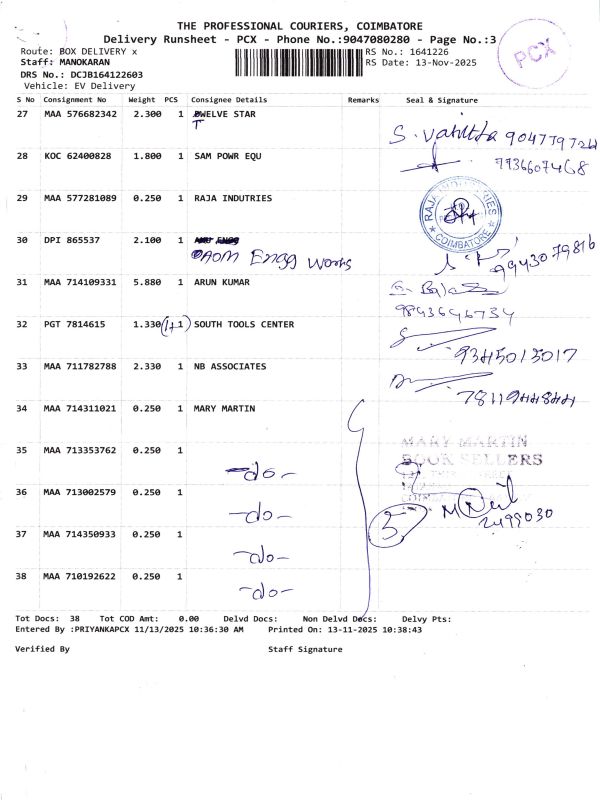 THE PROFESSIONAL COURIERS, COIMBATORE
Delivery Runsheet - PCX - Phone No.:9047080280 - Page No.:3
Route: BOX DELIVERY x
RS No.: 1641226
Staff: MANOKARAN
RS Date: 13-Nov-2025
DRS No.: DCJB164122603
Vehicle: EV Delivery
PCX
S No Consignment No Weight PCS Consignee Details Remarks Seal & Signature
27 MAA 576682342 2.300 1 WELVE STAR
T
9047797724
28 KOC 62400828 1.800 1 SAM POWR EQU
7936607468
29 MAA 577281089 0.250 1 RAJA INDUTRIES
RAJA INDUSTRIES
COIMBATORE
30 DPI 865537 2.100 1
AOM Engg Works
9943079816
31 MAA 714109331 5.880 1 ARUN KUMAR
9843646734
32 PGT 7814615 1.330 (1+1) SOUTH TOOLS CENTER
9345015017
33 MAA 711782788 2.330 1 NB ASSOCIATES
7811944844
34 MAA 714311021 0.250 1 MARY MARTIN
MARY MARTIN
BOOK SELLERS
35 MAA 713353762 0.250 1
-do-
36 MAA 713002579 0.250 1
-do-
5
2499030
37 MAA 714350933 0.250 1
-do-
38 MAA 710192622 0.250 1
-do-
Tot Docs: 38 Tot COD Amt: 0.00 Delvd Docs: Non Delvd Docs: Delvy Pts:
Entered By :PRIYANKAPCX 11/13/2025 10:36:30 AM Printed On: 13-11-2025 10:38:43
Verified By Staff Signature